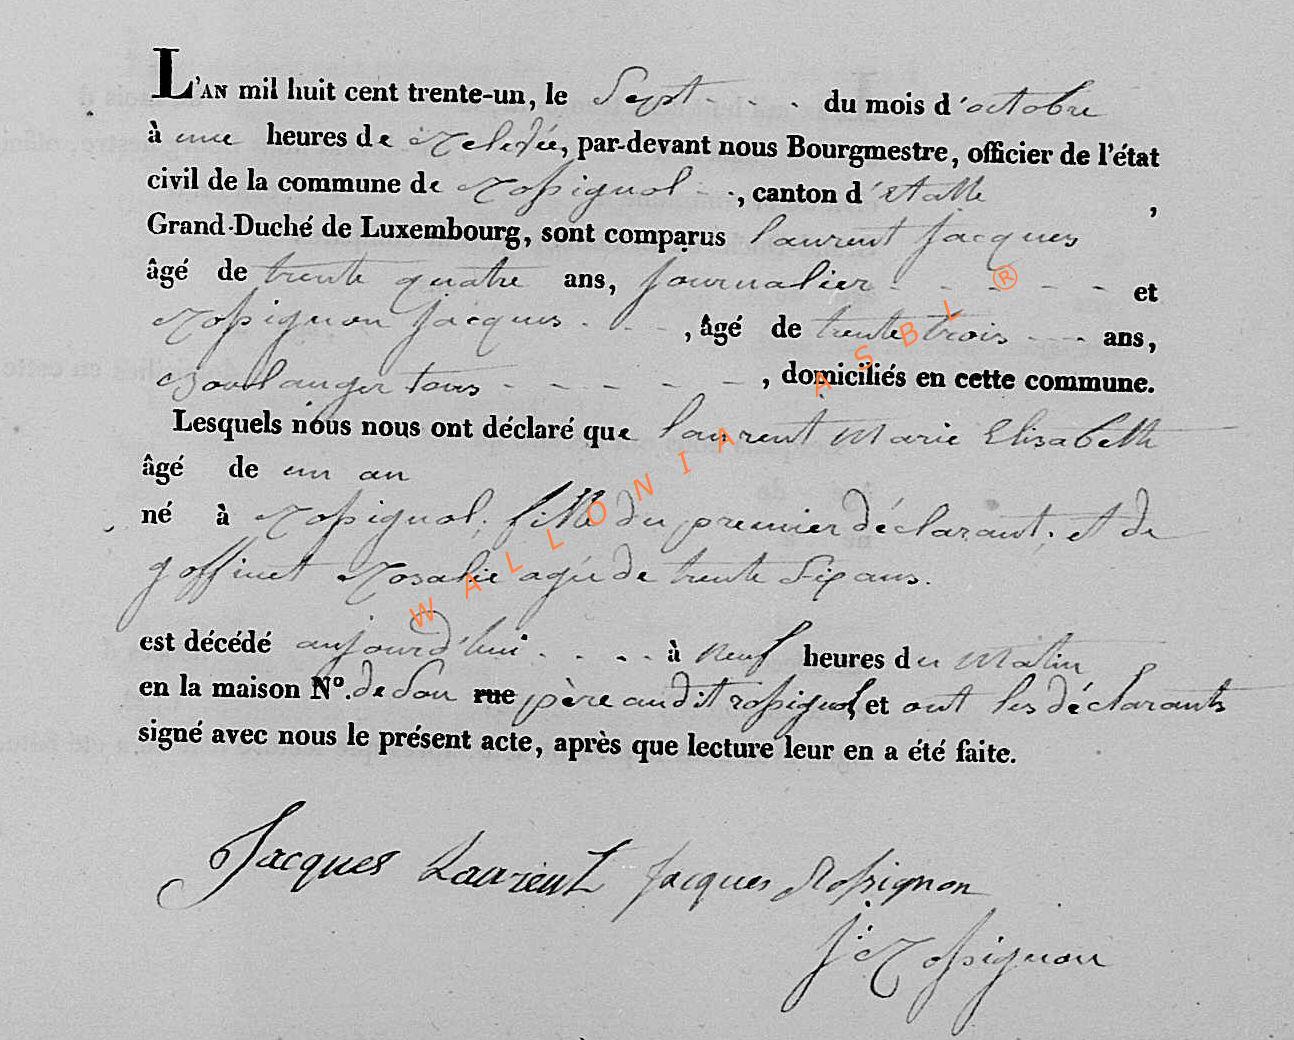 L'AN mil huit cent trente-un, le Sept du mois d'octobre
à une heures de Relevée, par-devant nous Bourgmestre, officier de l'état
civil de la commune de Rossignol, canton d'étalle,
Grand-Duché de Luxembourg, sont comparus laurent Jacques
âgé de trente quatre ans, Journalier et
Rossignon Jacques, âgé de trente trois ans,
Boulanger tous, domiciliés en cette commune.
Lesquels nous nous ont déclaré que laurent Marie Elisabeth
âgé de un an
né à Rossignol, fille du premier déclarant, et de
goffinet Rosalie agée de trente Six ans.
est décédé aujourd'hui à neuf heures du Matin
en la maison No. de Son rue père audit rossignol, et ont les déclarants
signé avec nous le présent acte, après que lecture leur en a été faite.
Jacques Laurent Jacques Rossignon
J: Rossignon
WALLONIA ASBL ®